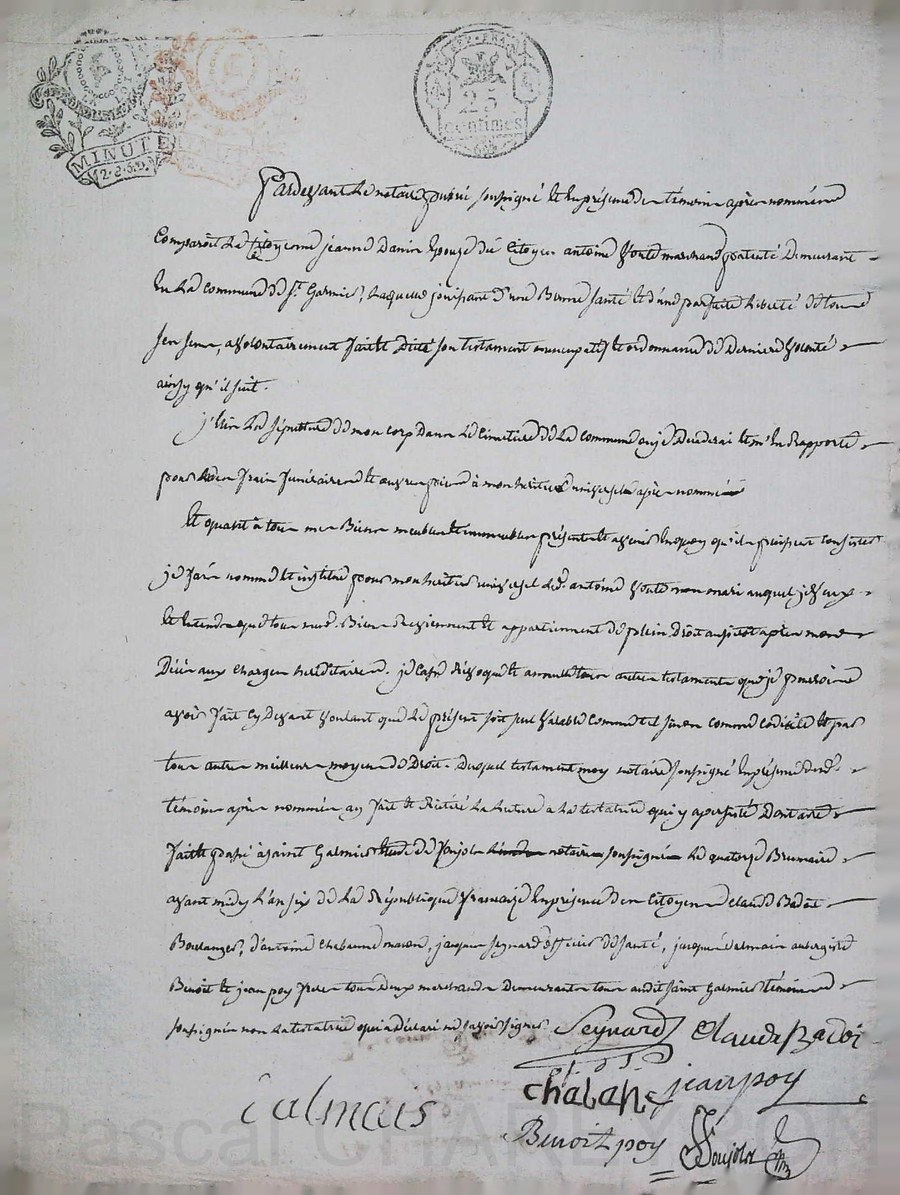 REP. FRA.
25
centimes
MINUTE
12.2.5.D.
Pardevant Le notaire public soussigné Et En présence des témoins après nommés
Comparoît La Citoyenne jeanne Danis Epouze du Citoyen antoine marchand patenté Demeurant
En La commune de St. Galmier, Laquelle jouissant d'une Bonne santé Et d'une parfaite Liberté de tous
ses sens, a volontairement fait Et Dicté son testament nuncupatif Et ordonnance de Derniere volonté
ainsy qu'il suit.
j'Elis La sépulture de mon corps Dans Le Cimetière de La commune ou je Decederai Et m'En Rapporte
pour Les frais funéraires Et œuvres pies à mon heritier universel après nommé
Et quant à tous mes Biens meubles Et immeubles présents Et avenir En quoy qu'ils puissent consister
je fais nomme Et institue pour mon heritier universel Led. antoine mon mari auquel je veux
Et Entends que tous mesd. Biens Reviennent Et appartiennent de plein Droit aussitot après mond.
Décès aux charges héréditaires. je Casse Révoque Et annulle tous autres testaments que je pourrois
avoir fait Cy Devant voulant que Le présent soit seul valable Comme tel sinon comme codicile Et par
tous autres meilleurs moyens de Droit. Duquel testament moy notaire soussigné En présence desd.
témoins après nommés ay fait Et Réitéré La Lecture a La testatrice qui y a persisté Dont acte
fait Et passé à saint Galmier Etude de Ponjol notaire soussigné Le quatorze Brumaire
avant midy L'an six de La République française En présence des Citoyens Claude Badoit
Boulanger, d'antoine Chabanne maçon, jacques Seynard officier de santé, jacques Calmais aubergiste
Benoit Et jean poy freres tous deux marchands Demeurants tous audit saint Galmier témoins
soussignés non La testatrice qui a Déclaré ne savoir signer
Seynard Claude Badoi
of. d. S.
Chaban jean poy
Calmais
Benoit poy Ponjol
Pascal CHAREYRON